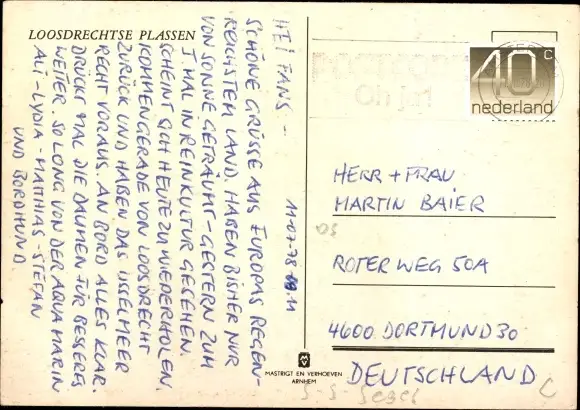 LOOSDRECHTSE PLASSEN
HEI FANS --
11-07-78 09.11
SCHÖNE GRÜSSE AUS EUROPAS REGEN-
REICHSTEM LAND. HABEN BISHER NUR
VON SONNE GETRÄUMT - GESTERN ZUM
1. MAL IN REINKULTUR GESEHEN.
SCHEINT SICH HEUTE ZU WIEDERHOLEN.
KOMMEN GERADE VON LOOSDRECHT
ZURÜCK UND HABEN DAS IJSSELMEER
RECHT VORAUS. AN BORD ALLES KLAR.
DRÜCKT MAL DIE DAUMEN FÜR BESSERES
WEITER. SO LONG VON DER AQUAMARIN
ALI - LYDIA - MATTHIAS - STEFAN
UND BORDHUND
MASTRIGT EN VERHOEVEN
ARNHEM
Oh ja!
40 c
nederland
HERR + FRAU
MARTIN BAIER
ROTER WEG 50A
4600 DORTMUND 30
DEUTSCHLAND